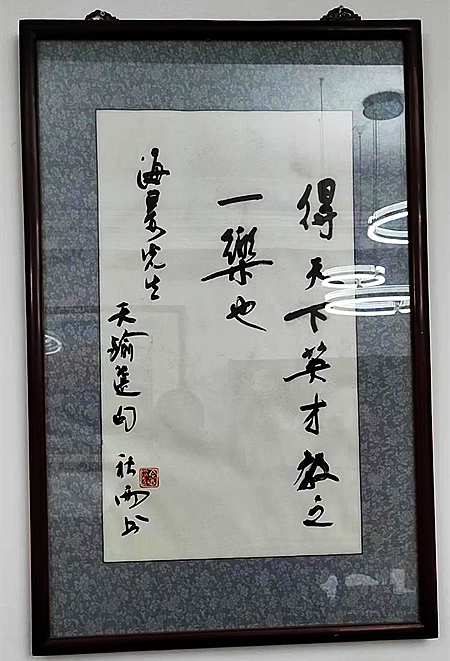 得天下英才教之
一樂也
海晏先生
天瑜選句 社西书